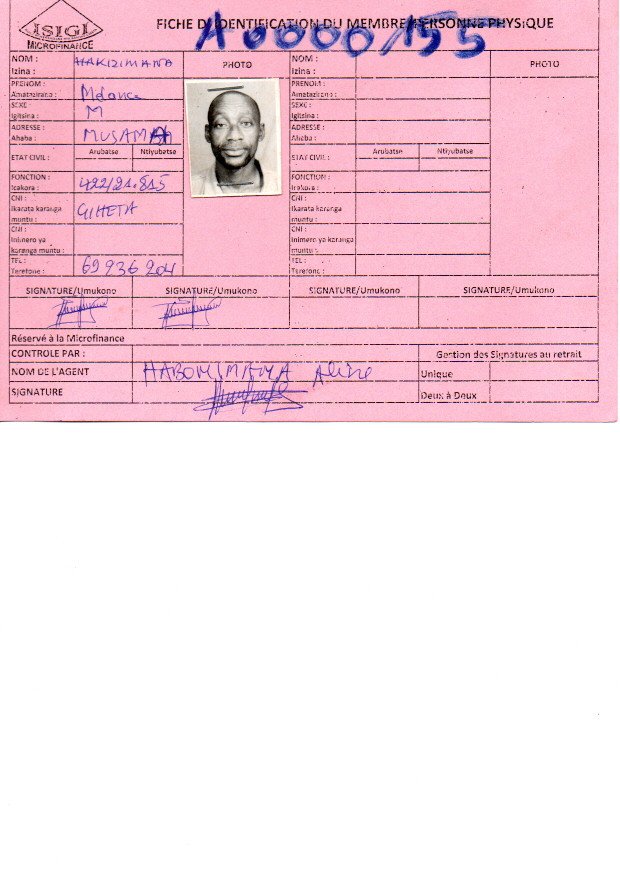 ISIGI
MICROFINANCE
FICHE D'IDENTIFICATION DU MEMBRE PERSONNE PHYSIQUE
A0000155
NOM :
Izina :
HAKIZIMANA
PHOTO
NOM :
Izina :
PHOTO
PRENOM :
Amatazirano :
PRENOM :
Amatazirano :
SEXE :
Igitsina :
M
SEXE :
Igitsina :
ADRESSE :
Ahaba :
ADRESSE :
Ahaba :
ETAT CIVIL :
Arubatse
Ntiyubatse
ETAT CIVIL :
Arubatse
Ntiyubatse
FONCTION :
Icakora :
422/21.815
FONCTION :
Icakora :
CNI :
Ikarata karanga
muntu :
GIHETA
CNI :
Ikarata karanga
muntu :
CNI :
Inimero ya
karanga muntu :
CNI :
Inimero ya karanga
muntu :
TEL :
Terefone :
69 936 204
TEL :
Terefone :
SIGNATURE/Umukono
SIGNATURE/Umukono
SIGNATURE/Umukono
SIGNATURE/Umukono
Réservé à la Microfinance
CONTROLE PAR :
Gestion des Signatures au retrait
NOM DE L'AGENT
Aline
Unique
SIGNATURE
Deux à Deux